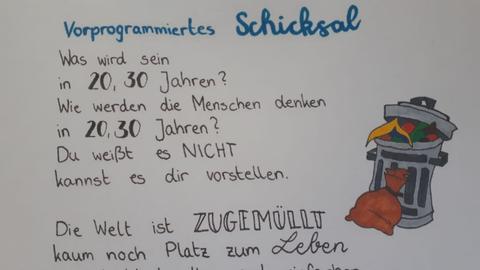 Vorprogrammiertes Schicksal
Was wird sein
in 20, 30 Jahren?
Wie werden die Menschen denken
in 20, 30 Jahren?
Du weißt es NICHT
kannst es dir vorstellen.
Die Welt ist ZUGEMÜLLT
kaum noch Platz zum Leben